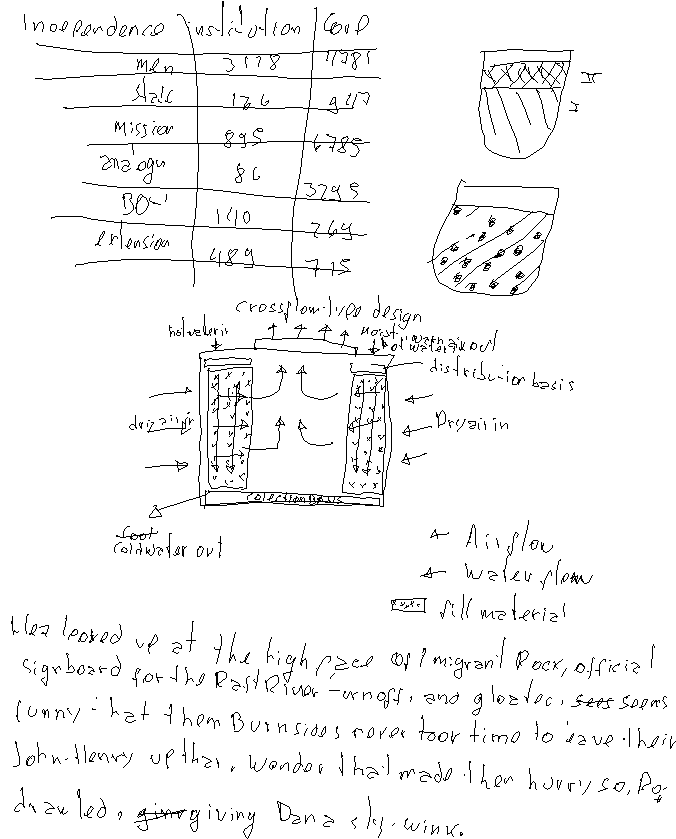 Independence institution Coup
men 3178 4781
State 126 947
mission 895 6785
analogu 86 3295
140 269
extension 489 715
II
I
crossflow-type design
hotwater in
distribution basis
Dry air in
Dry air in
Colection basis
Coldwater out
Air flow
Water flow
fill material
looked up at the high face of Imigrant Rock, official
signboard for the East River turnoff, and gloated, seems
funny that them Burnsides never took time to leave their
John-Henry up thar. Wonder that made them hurry so, Pa
drawled, giving Dana sly-wink.